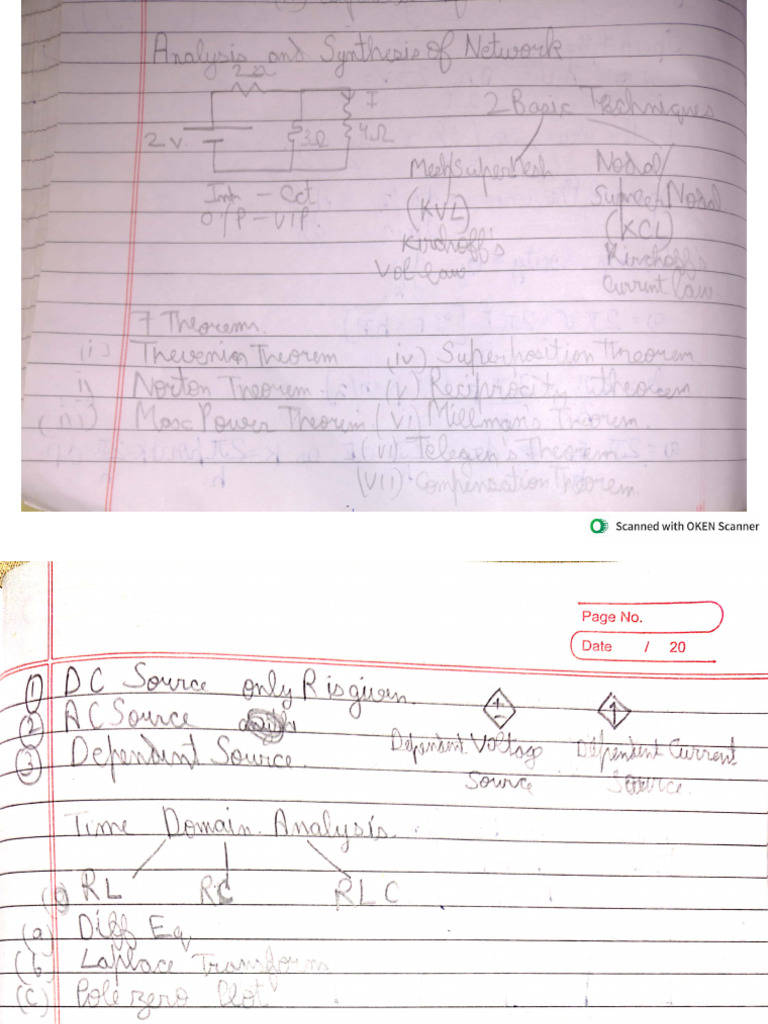 Analysis and Synthesis of Network
2Ω
I
2 Basic Techniques
2 V.
3Ω
4Ω
Mesh/SuperMesh
Nodal/
Super Nodal
Cct
(KVL)
(KCL)
O/P - V/P.
Kirchoff's
Vol law
Kirchoff's
Current law.
7 Theorems.
(i) Thevenin Theorem
(iv) Superposition theorem
i) Norton Theorem
(v) Reciprocity theorem
(iii) Max Power Theorem
(vi) Millman's Theorem.
(vii) Telegen's Theorem
(vii) Compensation Theorem
Scanned with OKEN Scanner
Page No.
Date / 20
① DC Source only R is given.
② AC Source
③ Dependent Source.
Dependent Voltage
Source
Dependent Current
Source.
Time Domain Analysis.
RL RC RLC
(a) Diff Eq
(b) Laplace Transform
(c) Pole zero Plot